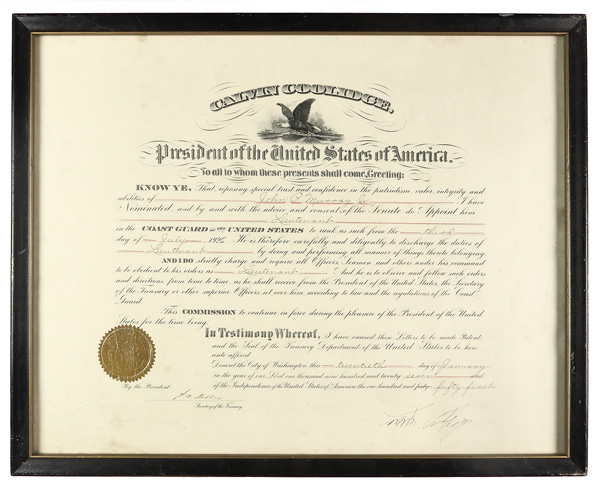 CALVIN COOLIDGE,
President of the United States of America.
To all to whom these presents shall come, Greeting:
KNOW YE, That reposing special trust and confidence in the patriotism, valor, integrity and
abilities of John F. Murray I have
Nominated, and by and with the advice and consent of the Senate do Appoint him
Lieutenant
in the COAST GUARD of the UNITED STATES to rank as such from the third
day of July 1926. He is therefore carefully and diligently to discharge the duties of
Lieutenant by doing and performing all manner of things thereto belonging.
AND I DO strictly charge and require all Officers, Seamen and others under his command
to be obedient to his orders as Lieutenant And he is to observe and follow such orders
and directions, from time to time, as he shall receive from the President of the United States, the Secretary
of the Treasury or other superior Officers set over him, according to law and the regulations of the Coast
Guard.
This COMMISSION to continue in force during the pleasure of the President of the United
States for the time being.
In Testimony Whereof, I have caused these Letters to be made Patent,
and the Seal of the Treasury Department of the United States to be here-
unto affixed.
Done at the City of Washington this twentieth day of January
in the year of our Lord one thousand nine hundred and twenty seven and
of the Independence of the United States of America the one hundred and fifty first
By the President
Secretary of the Treasury